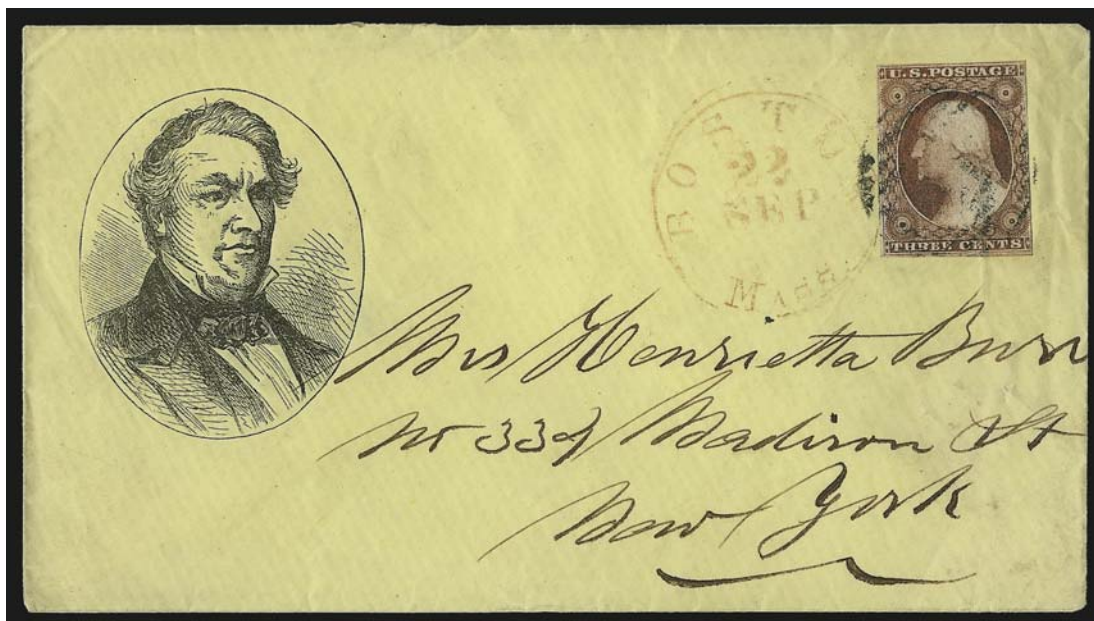 U.S. POSTAGE
THREE CENTS
BOSTO
22
SEP
MASS.
Mrs Henrietta Burr
No 339 Madison St
New York